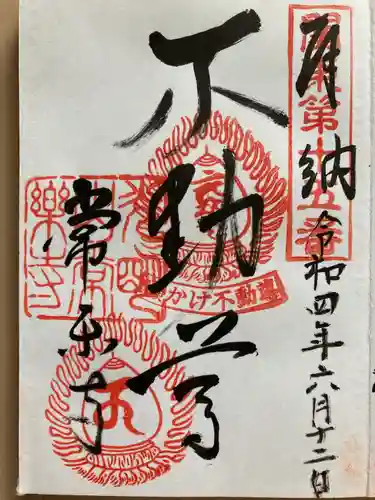 奉納
令和四年六月十二日
不動尊
常楽寺
関東第十五番
かけ不動尊